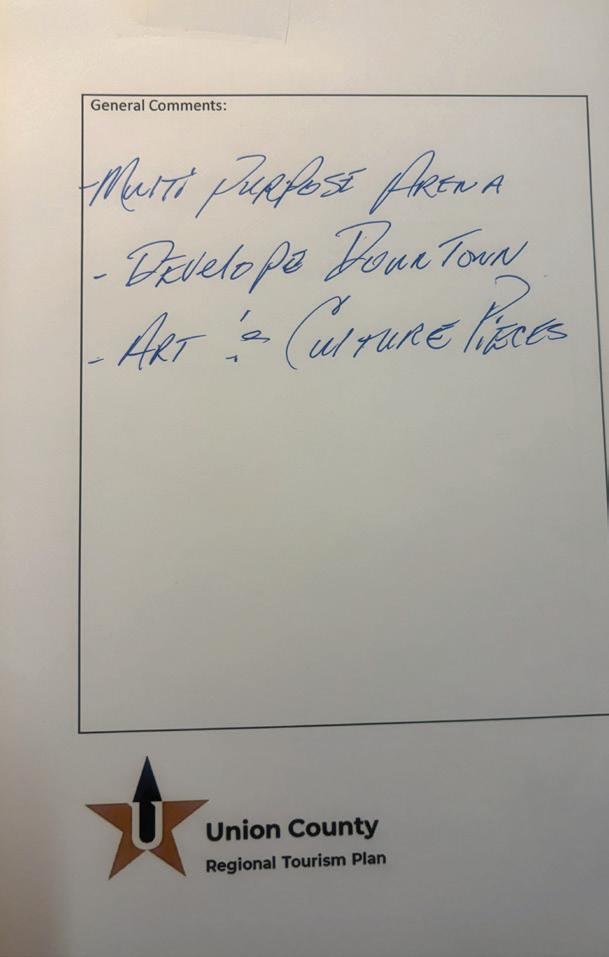 General Comments:
-Multi Purpose Arena
- Develope DownTown
- Art & Culture Pieces
U
Union County
Regional Tourism Plan